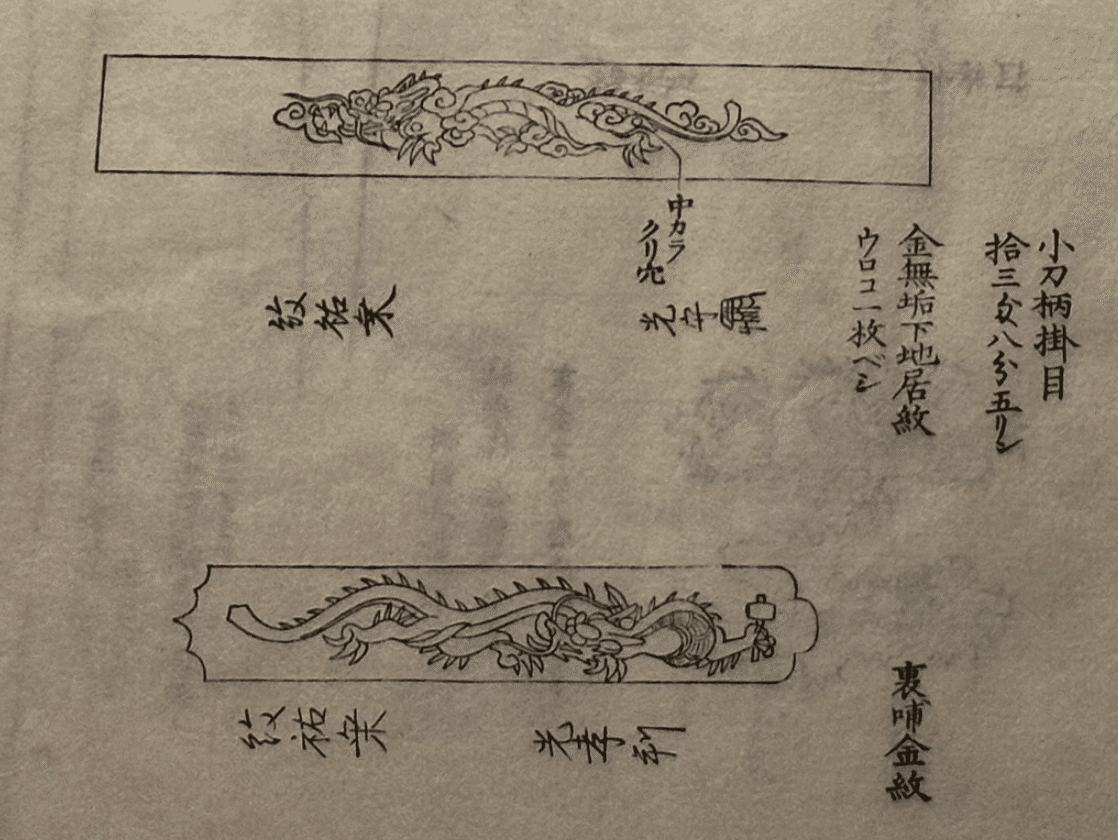 小刀柄掛目
拾三匁八分五リン
金無垢下地居紋
ウロコ一枚ベシ
中カラ
クリ穴
光守
紋祐乗
裏哺金紋
光孝
紋祐乗